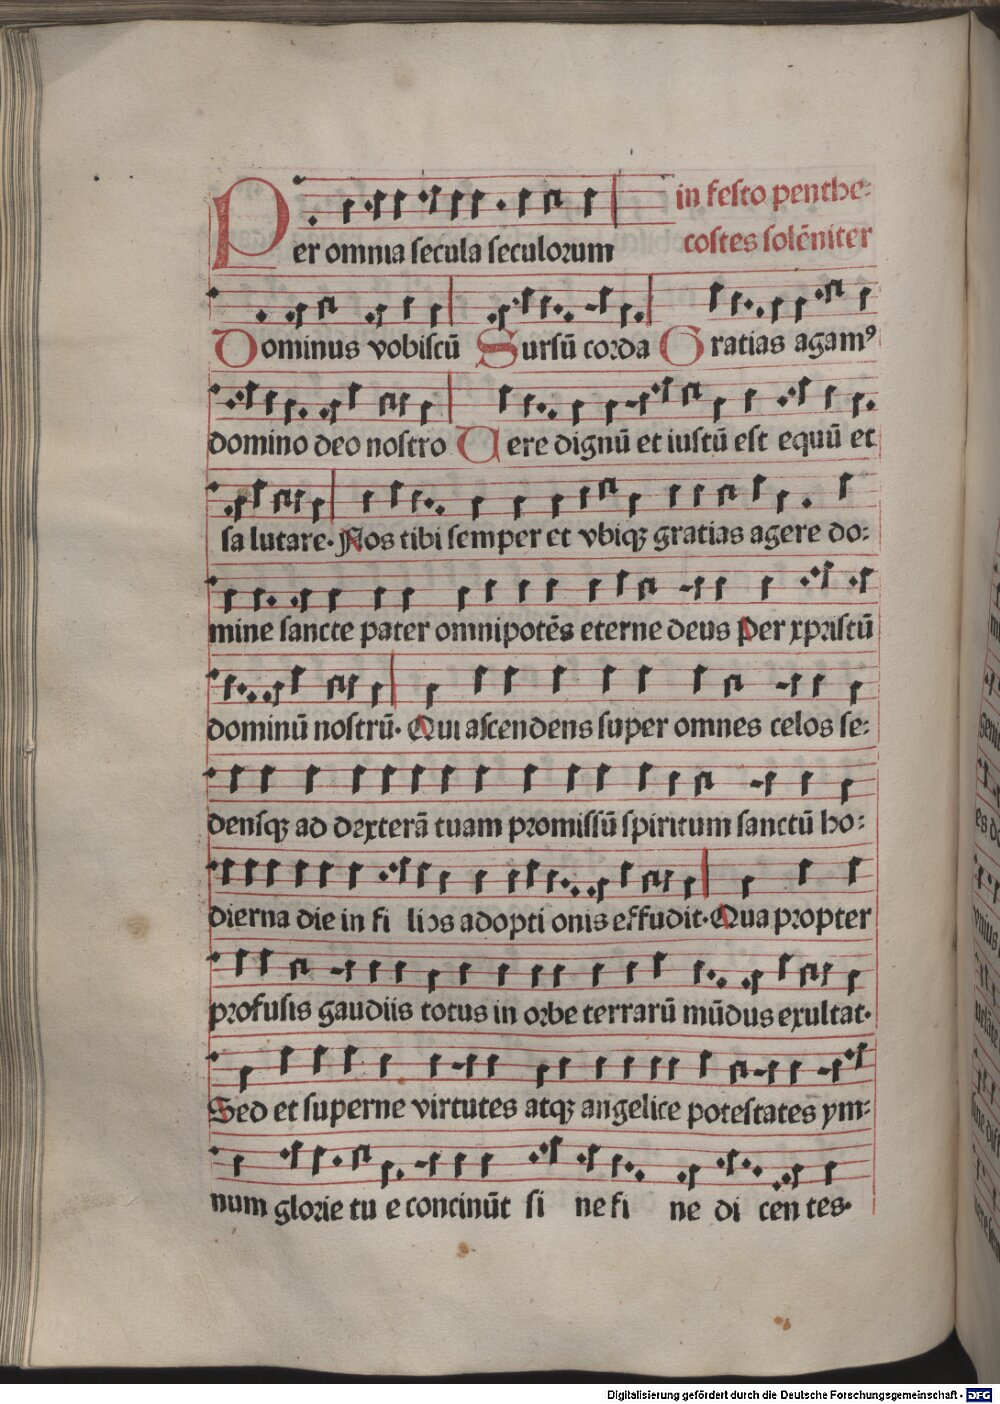 in festo penthe:
Per omnia secula seculorum
costes solēniter
Dominus vobiscū Sursū corda Gratias agamꝰ
domino deo nostro Vere dignū et iustū est equū et
sa lutare. Nos tibi semper et vbiqꝫ gratias agere do:
mine sancte pater omnipotēs eterne deus Per xpristū
dominū nostrū. Qui ascendens super omnes celos se:
densqꝫ ad dexterā tuam promissū spiritum sanctū ho:
dierna die in fi lios adopti onis effudit. Qua propter
profusis gaudiis totus in orbe terrarū mūdus exultat.
Sed et superne virtutes atqꝫ angelice potestates ym:
num glorie tu e concinūt si ne fi ne di cen tes.
Digitalisierung gefördert durch die Deutsche Forschungsgemeinschaft - DFG